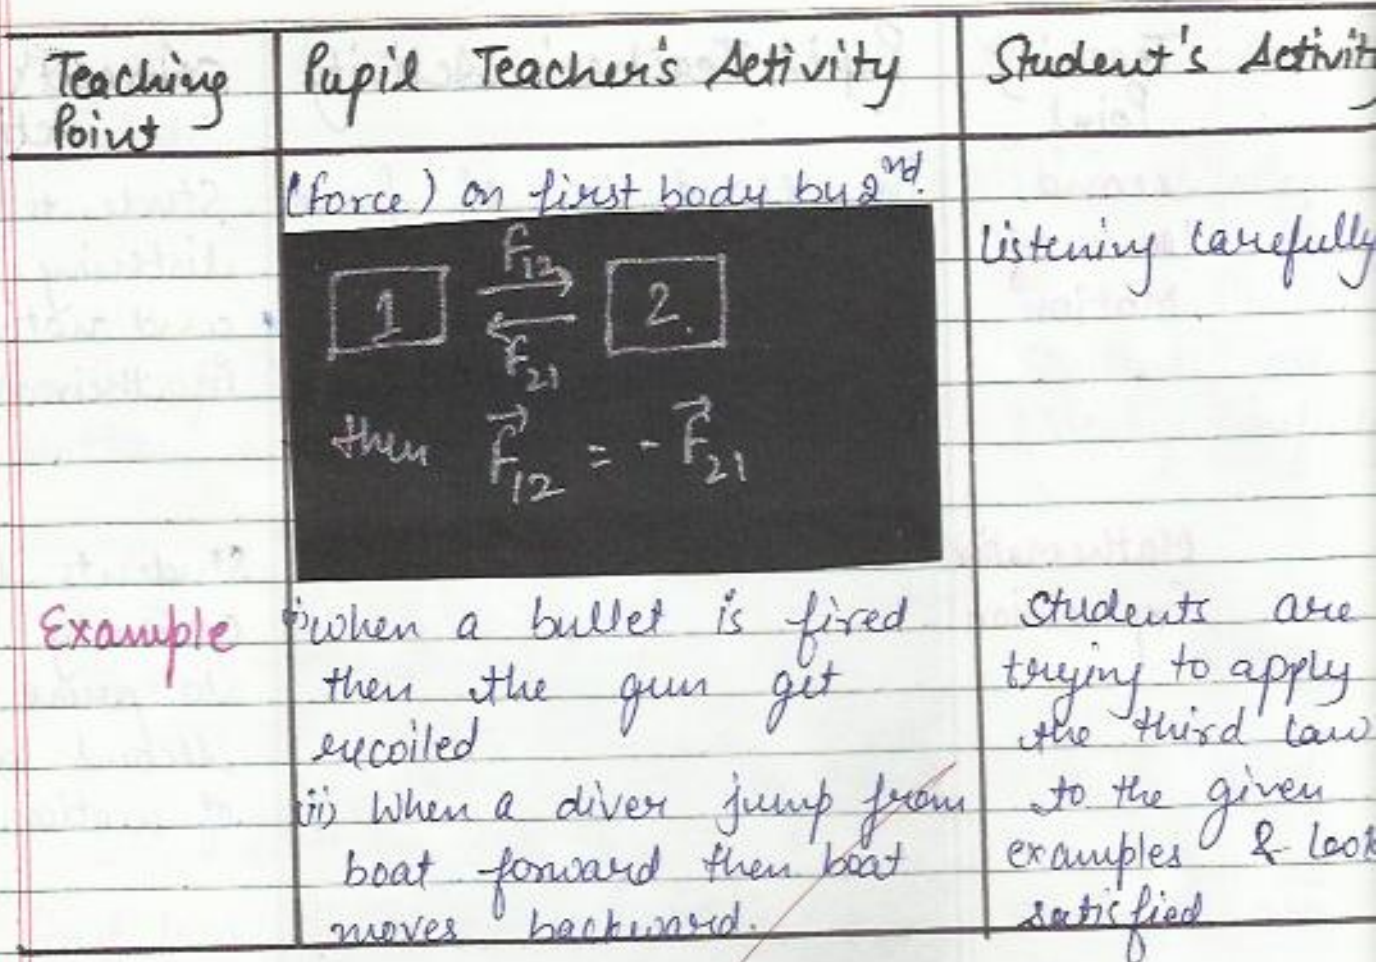 Teaching Point
Pupil Teacher's Activity
Student's Activit
(force) on first body by 2nd.
Listening carefully
F12
1
2.
F21
then F⃗12 = - F⃗21
Example
i) when a bullet is fired
then the gun get
recoiled
ii) When a diver jump from
boat forward then boat
moves backward.
Students are
trying to apply
the third law
to the given
examples & look
satisfied